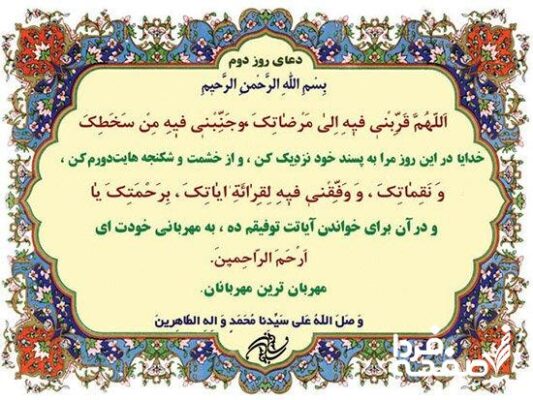 دعای روز دوم
بِسْمِ اللهِ الرَّحْمنِ الرَّحيمِ
اَللّهُمَّ قَرِّبْني فيهِ اِلىٰ مَرْضاتِكَ ،وجَنِّبْني فيهِ مِنْ سَخَطِكَ
خدایا در این روز مرا به پسند خود نزدیک کن ، و از خشمت و شکنجه هایت‌دورم‌کن ،
وَ نَقِماتِكَ ، وَ وَفِّقْني فيهِ لِقِرائَةِ اياتِكَ ، بِرَحْمَتِكَ يا
و در آن برای خواندن آیاتت توفیقم ده ، به مهربانی خودت ای
اَرْحَمَ الرّاحِمينَ.
مهربان ترین مهربانان.
وَ صَلَ اللهُ عَلى سَيِّدِنا مُحَمَدٍ وَ الِهِ الطّاهِرينَ
صفحه فردا